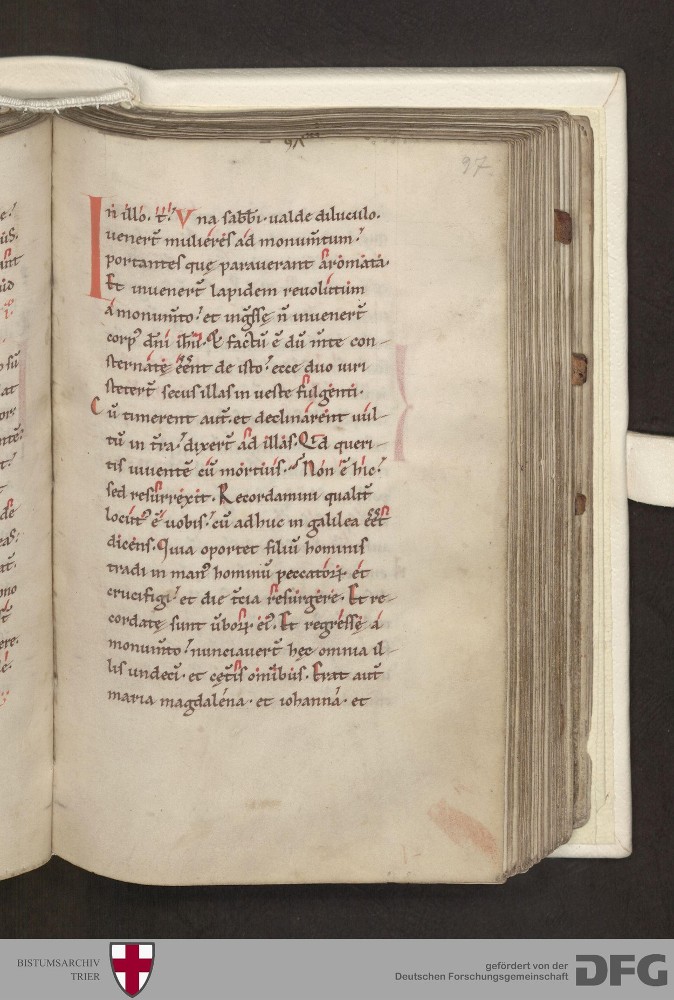 97
In illo. t̄. Una sabb̄i. ualde diluculo.
uenert̄ mulieres ad monum̄tum.
portantes quę parauerant aromata.
Et inuenert̄ lapidem reuolutum
a monum̄to. et ingr̄ssę n̄ inuenert̄
corpꝰ dn̄i ih̄u. Et factū ē dū m̄te con-
sternatę eēnt de isto. ecce duo uiri
stetert̄ secus illas in ueste fulgenti.
Cū timerent aut̄. et declinarent uul-
tū in t̄ra. dixert̄ ad illas. Qd queri-
tis uiuentē cū mortuis. Non ē hic.
sed resurrexit. Recordamini qualit̄
locutꝰ ē uobis. cū adhuc in galilea eēt
dicens. Quia oportet filiū hominis
tradi in manꝰ hominū peccatoꝝ et
crucifigi. et die t̄cia resurgere. Et re-
cordatę sunt ūboꝝ eiꝰ. Et regressę a
monum̄to. nunciauert̄ hęc omnia il-
lis undeci. et cęt̄is om̄ibus. Erat aut̄
maria magdalena. et iohanna. et
BISTUMSARCHIV
TRIER
gefördert von der
Deutschen Forschungsgemeinschaft
DFG